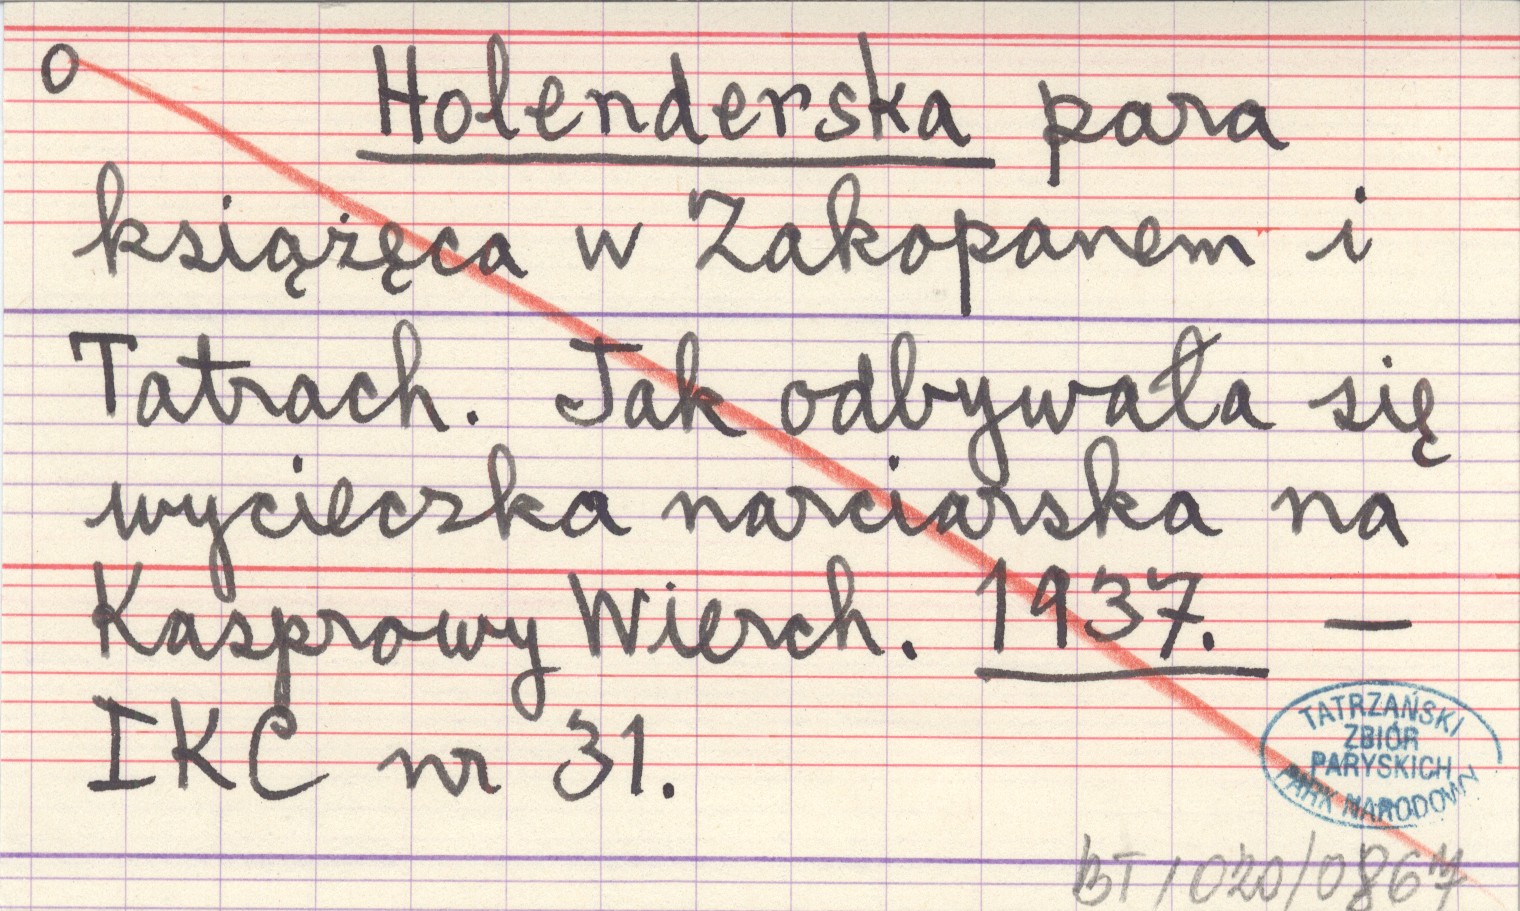 O Holenderska para
książęca w Zakopanem i
Tatrach. Jak odbywała się
wycieczka narciarska na
Kasprowy Wierch. 1937. —
IKC nr 31.
TATRZAŃSKI
ZBIÓR
PARYSKICH
PARK NARODOWY
BT/020/0867